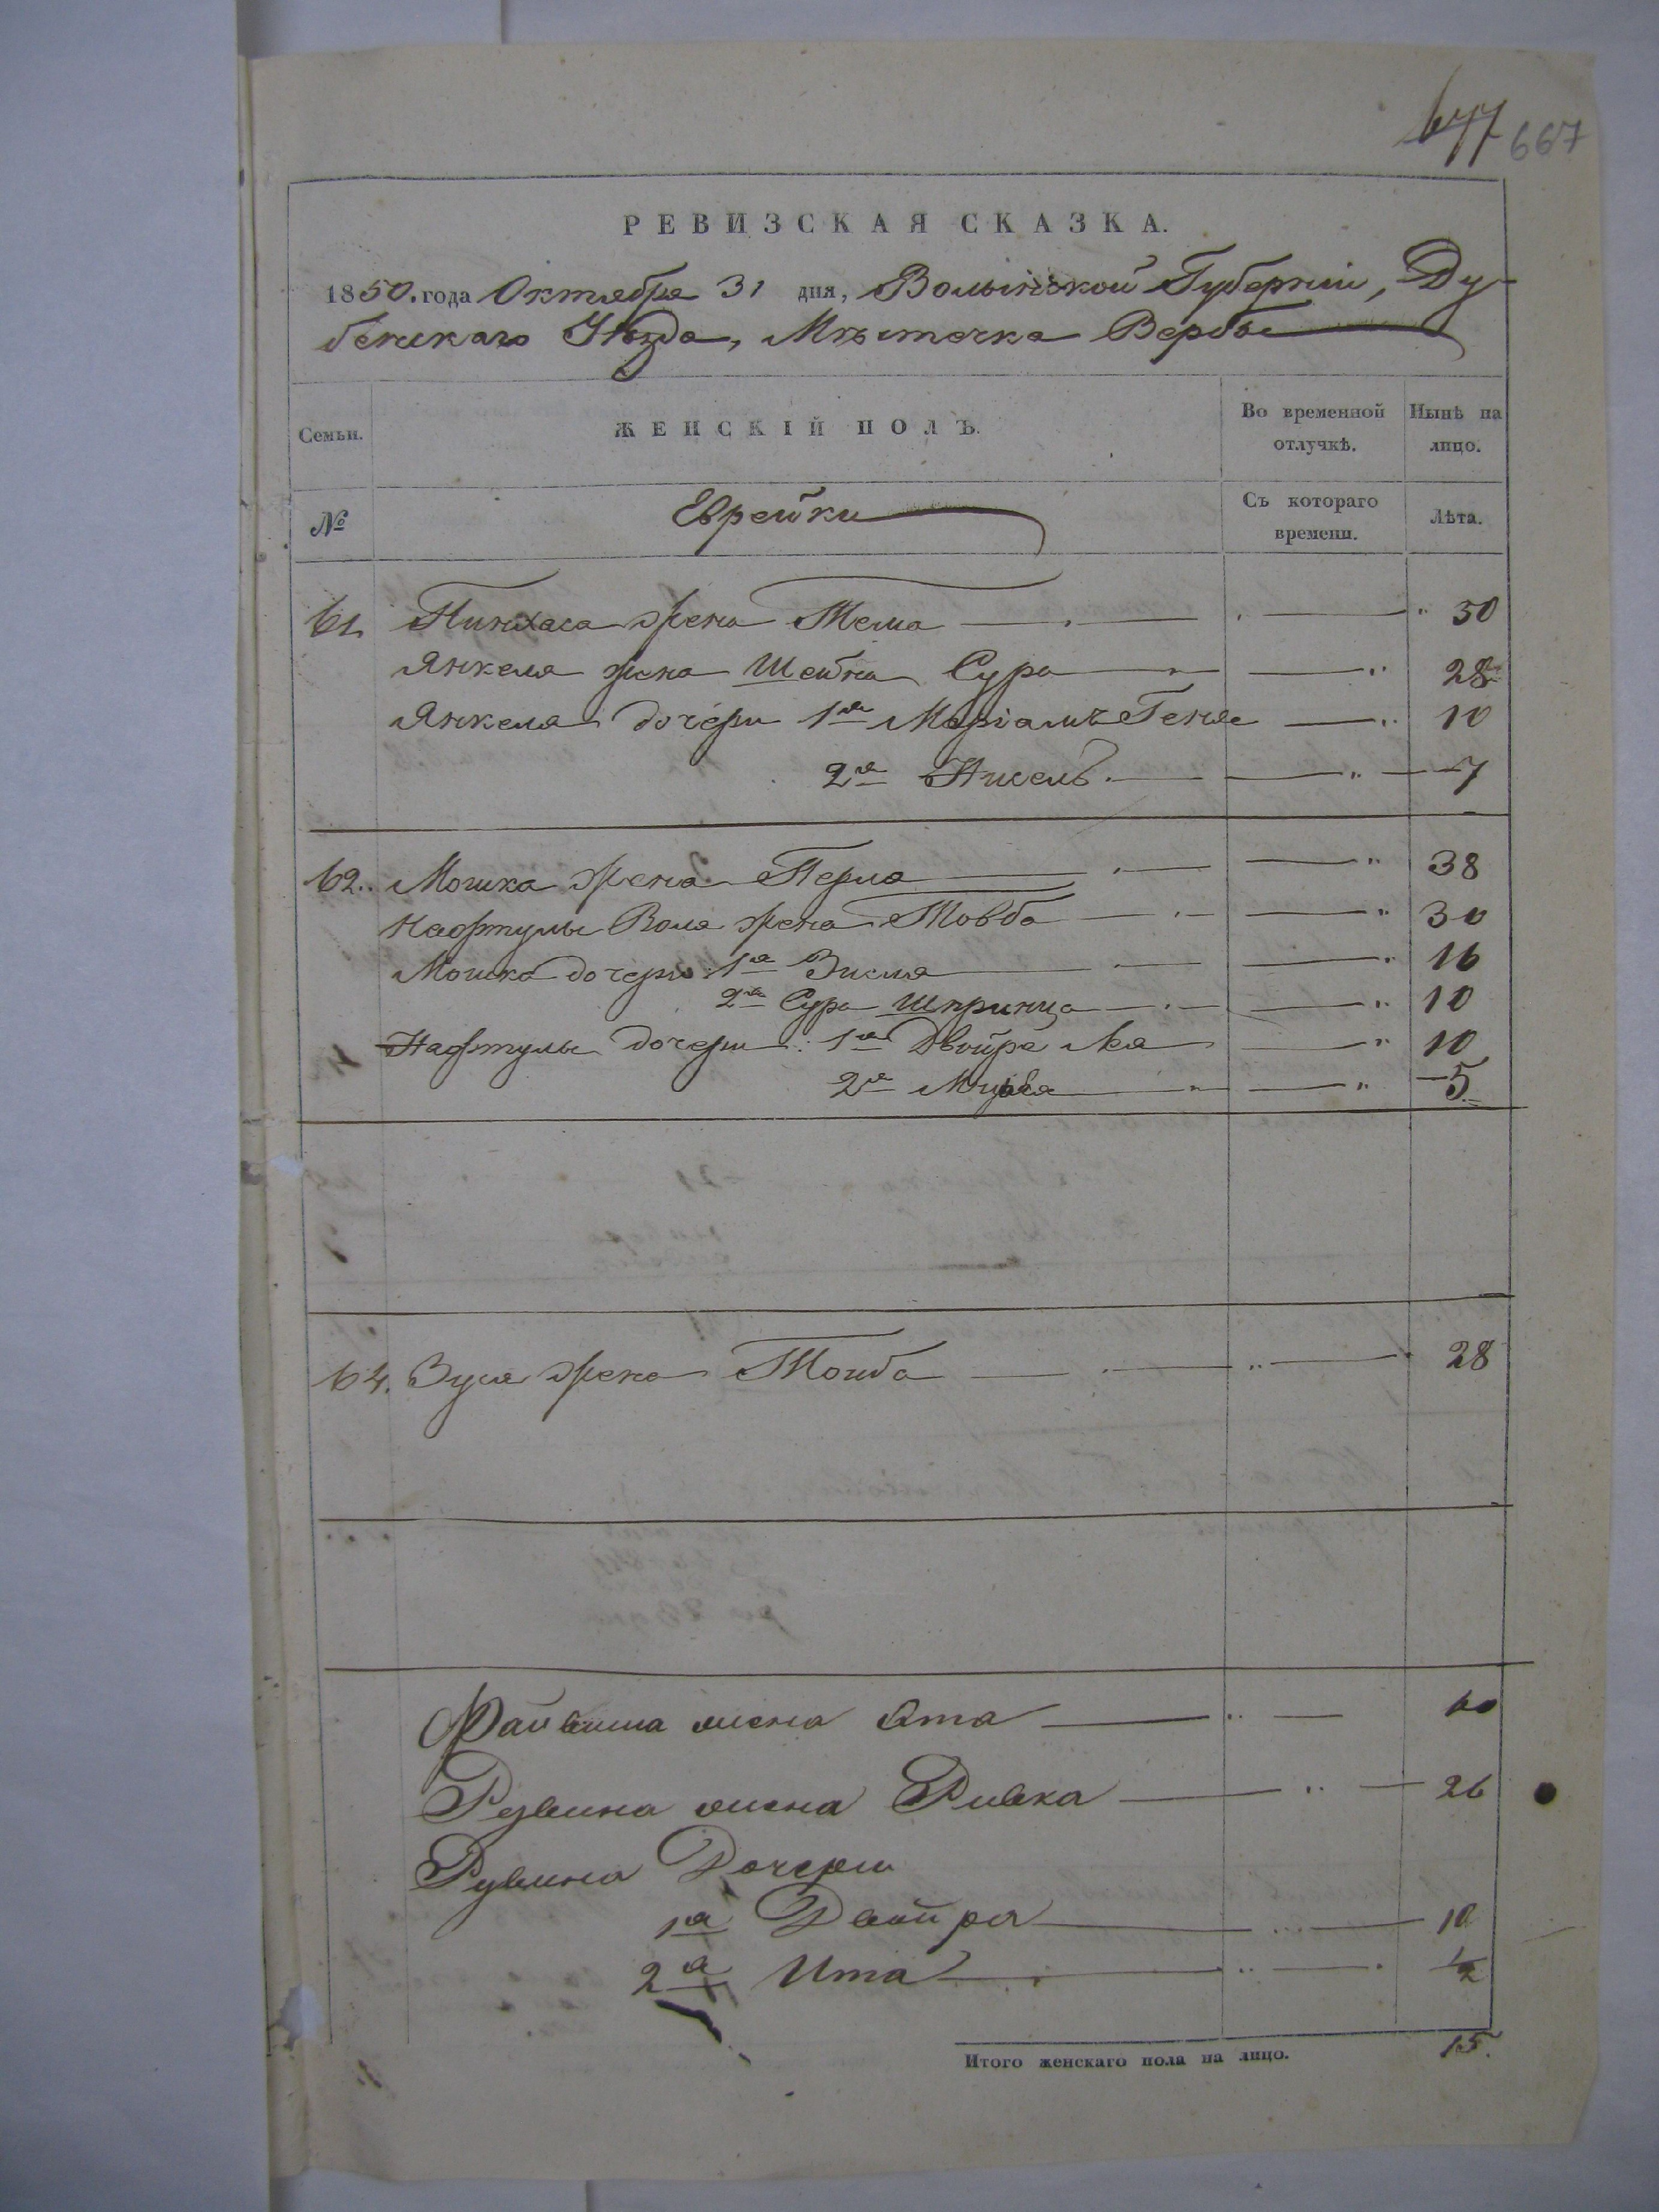 677 667
РЕВИЗСКАЯ СКАЗКА.
1850. года Октября 31 дня, Волынской Губернии, Ду-
бенскаго Уѣзда, Мѣстечка Вербы
Семьи. ЖЕНСКІЙ ПОЛЪ. Во временной отлучкѣ. Нынѣ на лицо.
№ Еврейки Съ котораго времени. Лѣта.
61. Пинхаса жена Тема " 50
Янкеля жена Шейна Сура " 28
Янкеля дочери 1я Маріамъ Геня " 10
2я Нисель " 7
62. Мошка жена Перля " 38
Нафтулы Воля жена Товба " 30
Мошка дочери: 1я Зисля " 16
2я Сура Шпринца " 10
Нафтулы дочери: 1я Двойра Лея " 10
2я " 5
64. Зуся жена Тойба " 28
Файвиша жена " 60
Рувина жена Ривка " 26
Рувина Дочери
1я Двойра " 10
2я Ита " 1/2
Итого женскаго пола на лицо. 15.